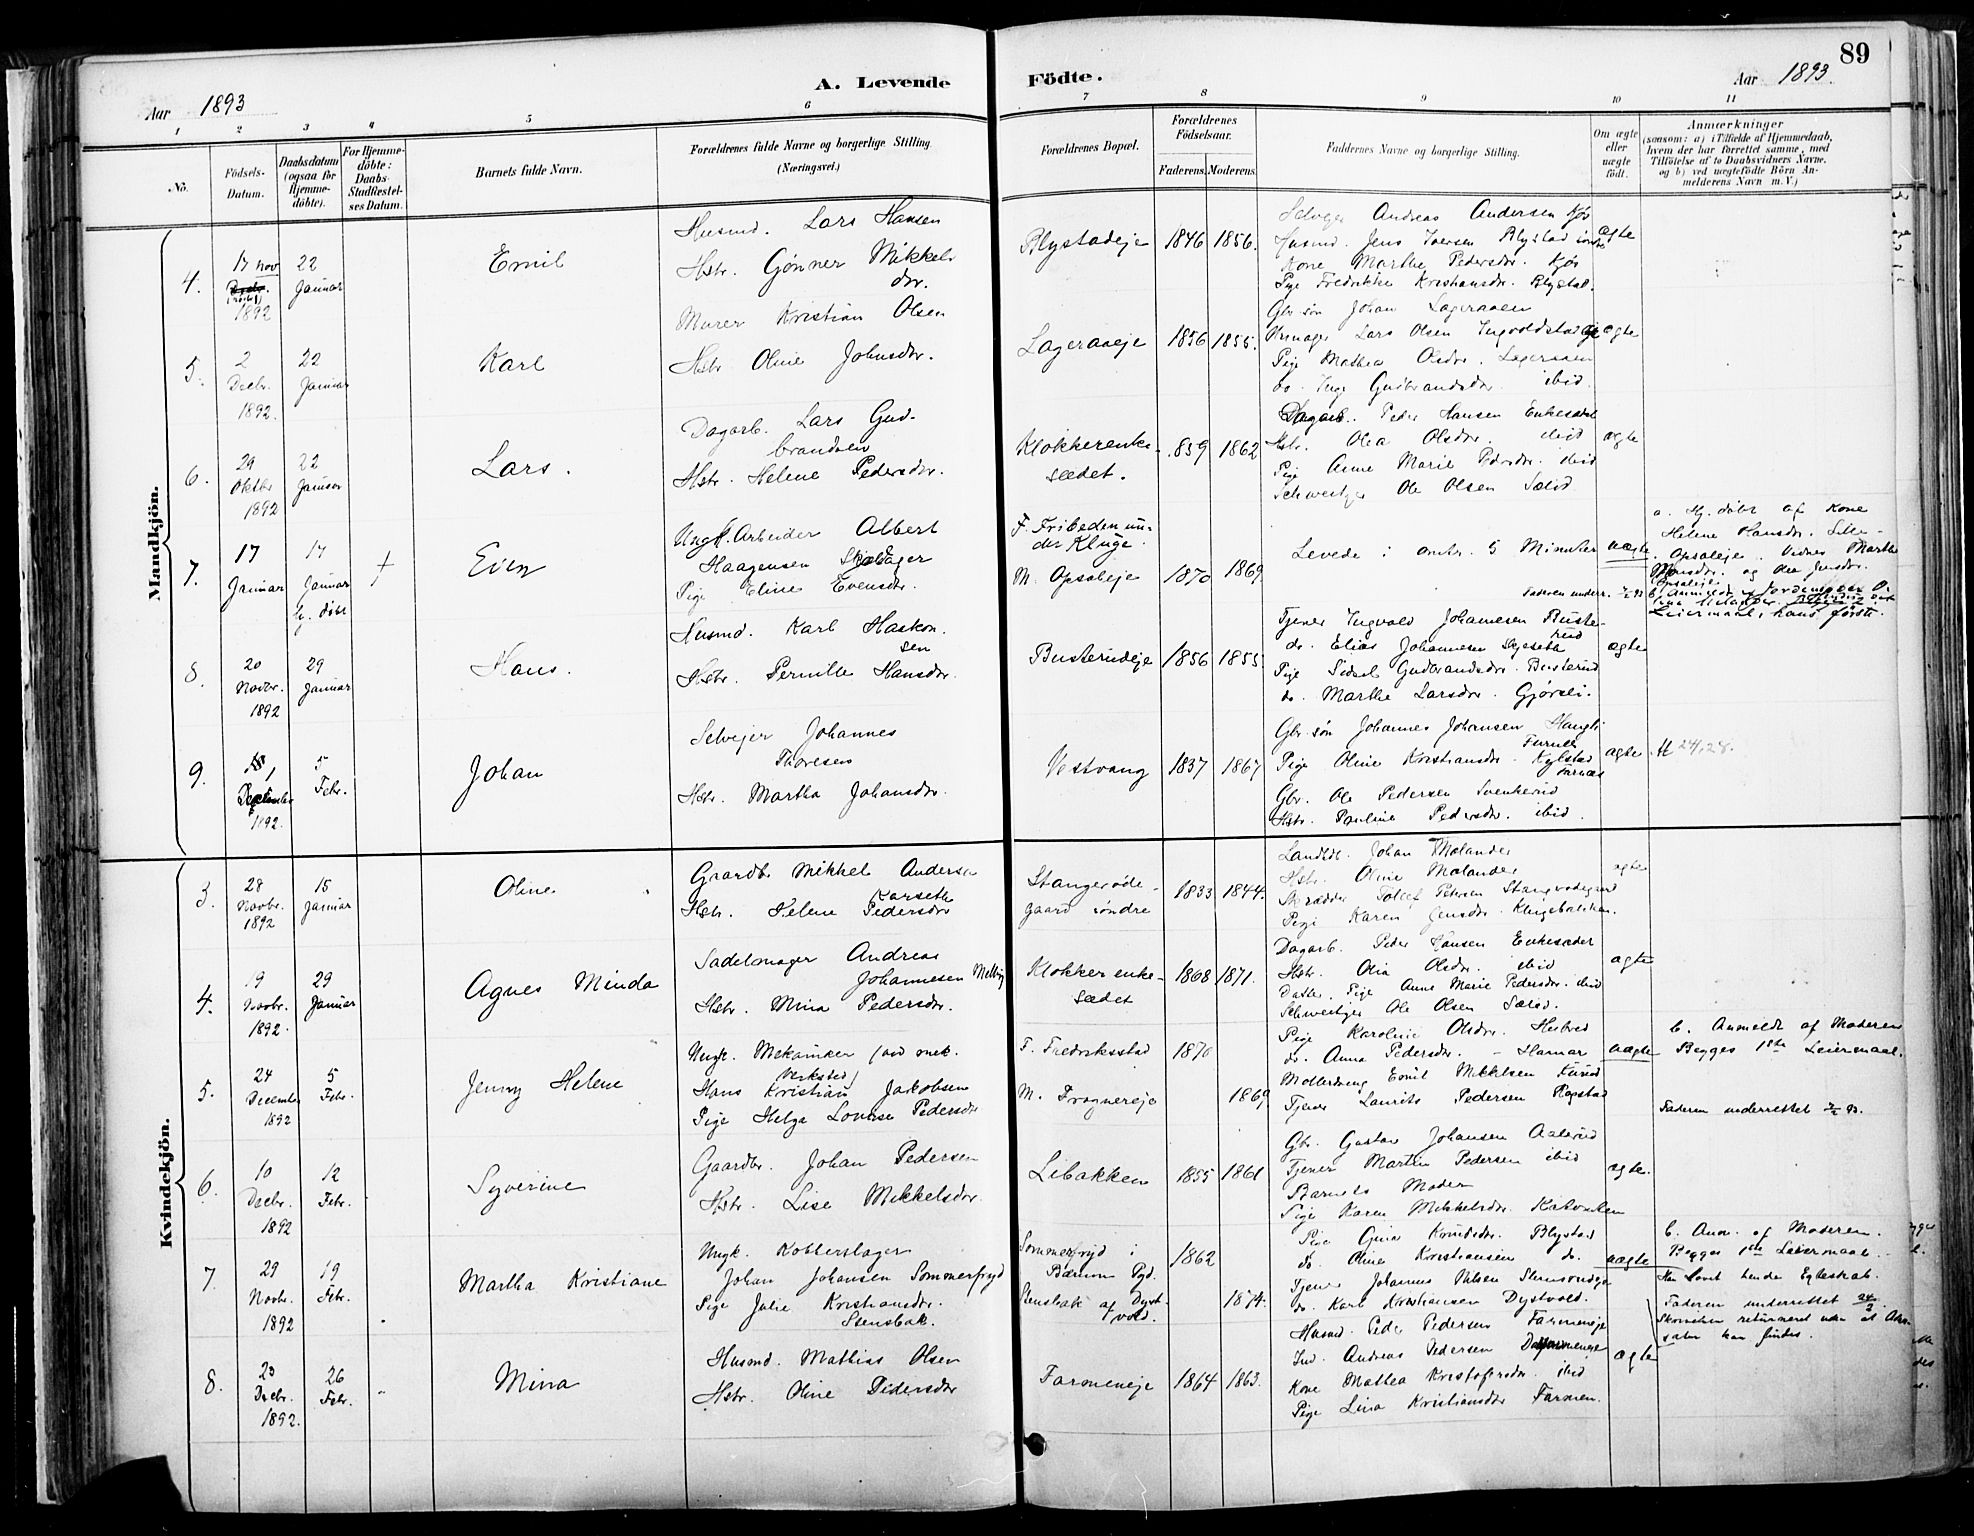 89
A. Levende Födte.
Aar 1893
Aar 1893.
1 2 3 4 5 6 7 8 9 10 11
No.
Födsels-Datum.
Daabsdatum (ogsaa for Hjemmedöbte).
For Hjemmedöbte: Daabs-Stadfæstelses Datum.
Barnets fulde Navn.
Forældrenes fulde Navne og borgerlige Stilling. (Næringsvei.)
Forældrenes Bopæl.
Forældrenes Födselsaar.
Faderens. Moderens.
Faddernes Navne og borgerlige Stilling.
Om ægte eller uægte födt.
Anmærkninger
(saasom: a) i Tilfælde af Hjemmedaab,
hvem der har forrettet samme, med
Tilföielse af to Daabsvidners Navne,
og b) ved uægtefödte Börn An-
melderens Navn m. V.)
Mandkjön.
4. 17 nov 1892
22 Januar
Emil
Husmd. Lars Hansen
Hstr. Gønner Mikkels
dtr.
Blystadeje 1846 1856.
Selvejer Andreas Andersen Kjös
Husmd. Jens Iversen Blystad söndre
Kone Marthe Pedersdr. Kjös
Pige Fredrikke Kristiansdr. Blystad.
ægte
5. 2 Decbr. 1892.
22 Januar
Karl
Murer Kristian Olsen
Hstr. Oline Johnsdtr.
Lageraaeje 1856 1855.
Gbr. sön Johan Lageraaen
Lars Olsen
Pige Mathea Olsdr. Lageraaen
do. Inga Gudbrandsdr. ibid
ægte
6. 29 Oktbr 1892
22 Januar
Lars.
Dagarb. Lars Gud-
brandsen
Hstr. Helene Pedersdtr.
Klokkerenke-
sædet. 859 1862
Dagarb. Peder Hansen Enkesædet
Hstr. Olea Olsdtr. ibid
Pige Anne Marie Pedersdr. ibid
Ole Olsen
ægte
7. 17 Januar
17 Januar hj. döbt
+
Even
Ungk. Arbeider Albert
Haagensen
Pige Eline Evensdr.
F. Fribeden un-
der Kluge.
M. Opsaleje 1870 1869
Levede i omtr. 5 Minutter
uægte
Faderen underr.
a. Hj. döbt af Kone
Helene Hansdr. Lille-
Opsaleje. Vidner Marthe
og
8. 20 Novbr. 1892
29 Januar
Hans.
Husmd. Karl Haakon-
sen
Hstr. Pernille Hansdr.
Busterudeje 1856 1855
Tjener Ingvald Johannesen Buste-
rud
do. Elias Johannesen
Pige Sidsel Gudbrandsdr. Busterud
do. Marthe Larsdr. Gjörsli.
ægte
9. 1 1892.
5 Febr.
Johan
Selvejer Johannes
Thoresen
Hstr. Martha Johansdr.
Vestvang 1837 1867
Gbr. sön Johannes Johansen
Pige Oline Kristiansdr.
Gbr. Ole Pedersen Svenkerud
Hstr. Pauline Pedersdr. ibid.
ægte
24/28.
Kvindekjön.
3. 28 Novbr. 1892
15 Januar
Oline
Gaardbr. Mikkel Andersen
Karseth
Hstr. Helene Pedersdtr
Stangeröde-
gaard söndre 1833 1844.
Landhdl. Johan Molander
Hstr. Oline Molander
Skrædder Tollef Petersen
Pige Karen Jensdr.
ægte
4. 19 Novbr. 1892.
29 Januar
Agnes Minda
Sadelmager Andreas
Johannesen Melby
Hstr. Mina Pedersdr.
Klokkerenke-
sædet 1868 1871.
Dagarb. Peder Hansen Enkesædet
Hstr. Olea Olsdr. ibid
Datter, Pige Anne Marie Pedersdr. ibid
Ole Olsen
ægte
5. 24 December 1892
5 Febr.
Jenny Helene
Ungk. Mekaniker (ved mek.
Verksted)
Hans Kristian Jakobsen
Pige Helga Lovise Pedersdr
F. Fredriksstad 1870
M. Frognereje 1869
Pige Karoline Olsdr.
do. Anna Pedersdr. – Hamar
Emil Mikkelsen
Tjener Laurits Pedersen
uægte
b. Anmeldt af Moderen
Begges 1ste Leiermaal.
Faderen underrettet
6. 10 Decbr. 1892
12 Febr.
Syverine
Gaardbr. Johan Pedersen
Hstr. Lise Mikkelsdr.
Libakken 1855 1861
Gbr. Gustav Johansen Aalerud
Tjener Martin Pedersen ibid
Barnets Moder
Pige Karen Mikkelsdr.
ægte.
7. 29 Novbr. 1892
19 Febr.
Martha Kristiane
Ungk. Kobberslager
Johan Johansen Sommerfryd
Pige Julie Kristiansdr.
Stensbak.
Sommerfryd i
Bærum Pgd. 1862
Stensbak af Dyst-
vold. 1874.
Pige Gina Knudsdr. Blystad
do. Oline Kristiansen do.
Tjener Johannes Nilsen
do. Karl Kristiansen Dystvold.
uægte
b. Anm. af Moderen.
Begges 1ste Leiermaal.
Han lovet hende Egteskab.
Faderen underrettet 24/2.
Skrivelsen returneret uden at Adres-
saten kan findes.
8. 23 Decbr. 1892.
26 Febr.
Mina
Husmd. Mathias Olsen
Hstr. Oline Pedersdtr
Farmeneje 1864 1863.
Husmd. Peder Pedersen Farmeneje
Ind. Andreas Pedersen
Kone Mathea Kristofersdr. ibid
Pige Lina Kristiansdtr Farmen.
ægte